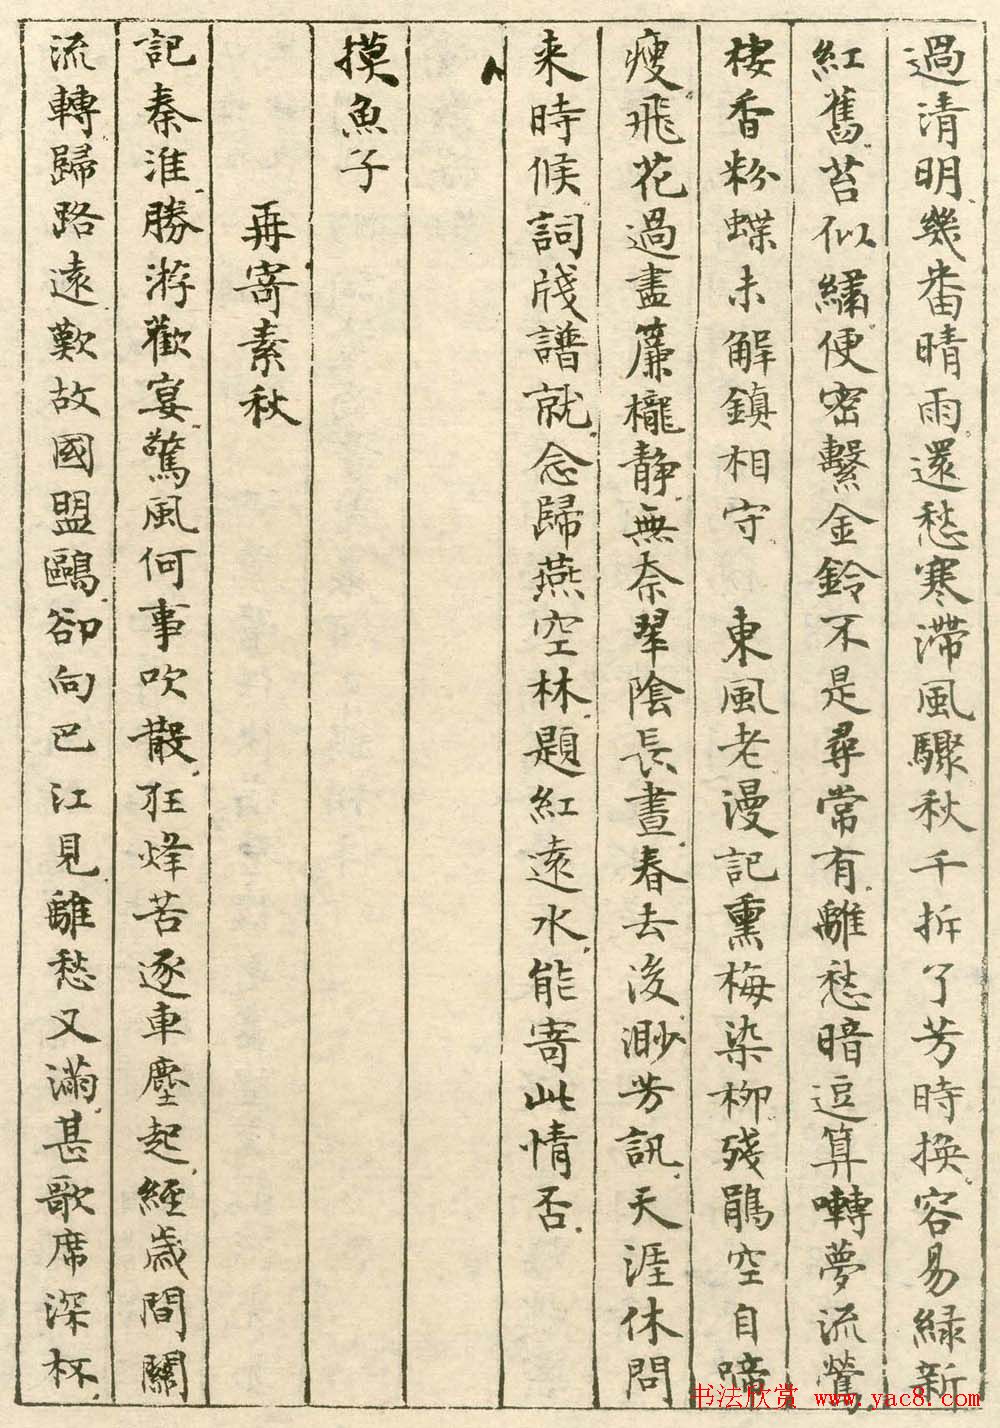 過清明幾番晴雨還愁寒滯風驟秋千拆了芳時換容易綠新
紅舊苔似繡便密繫金鈴不是尋常有離愁暗逗算囀夢流鶯
棲香粉蝶未解鎮相守　東風老漫記熏梅染柳殘鵑空自啼
瘦飛花過盡簾櫳静無奈翠陰長晝春去後渺芳訊天涯休問
来時候詞牋譜就念歸燕空林題紅遠水能寄此情否
摸魚子
再寄素秋
記秦淮勝游歡宴驚風何事吹散狂烽苦逐車塵起經歲間關
流轉歸路遠歎故國盟鷗卻向巴江見離愁又滿甚歌席深杯
书法欣赏 www.yac8.com